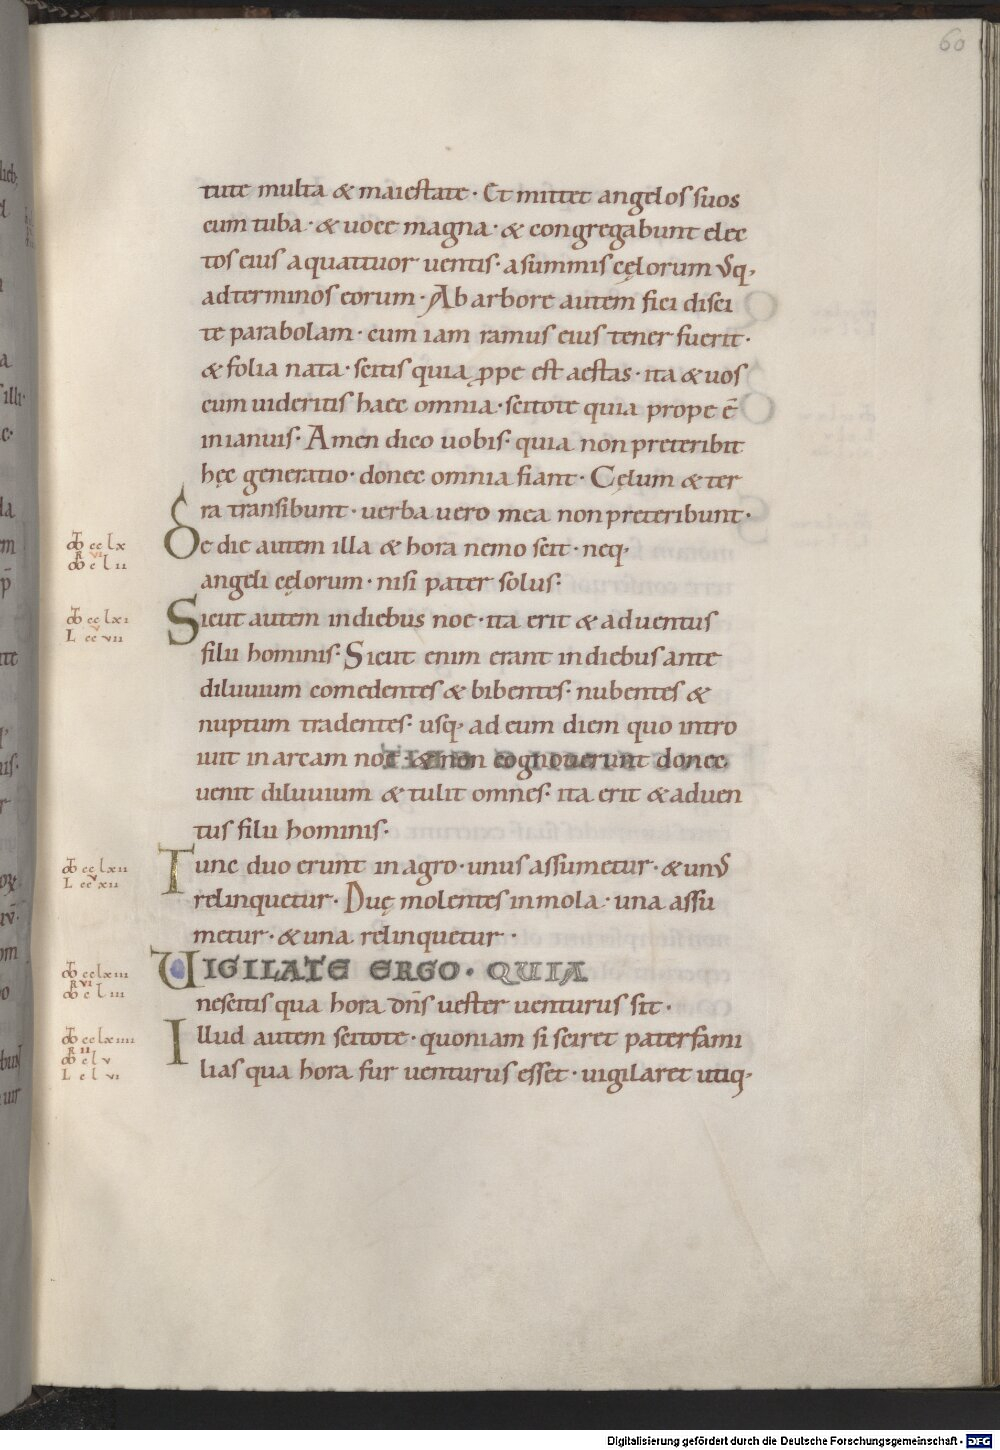 60
tute multa & maiestate · Et mittet angelos suos
cum tuba · & uoce magna · & congregabunt elec
tos eius a quattuor uentis · a summis cęlorum usq;
ad terminos eorum · Ab arbore autem fici disci
te parabolam · cum iam ramus eius tener fuerit ·
& folia nata · scitis quia ꝓpe est aestas · ita & uos
cum uideritis haec omnia · scitote quia prope ē
in ianuis · Amen dico uobis · quia non preteribit
hęc generatio · donec omnia fiant · Cęlum & ter
ra transibunt · uerba uero mea non preteribunt ·
cclx
De die autem illa & hora nemo scit · neq;
clii
angeli cęlorum · nisi pater solus ·
cclxi
Sicut autem in diebus noe · ita erit & aduentus
L ccvii
filii hominis · Sicut enim erant in diebus ante
diluuium comedentes & bibentes · nubentes &
nuptum tradentes · usq; ad eum diem quo intro
iuit in arcam noe · & non cognouerunt donec
uenit diluuium & tulit omnes · ita erit & aduen
tus filii hominis ·
cclxii
Tunc duo erunt in agro · unus assumetur · & unus
L ccxii
relinquetur · Duę molentes in mola · una assu
metur · & una relinquetur ·
cclxiii
UIGILATE ERGO · QUIA
cliii
nescitis qua hora dn̄s uester uenturus sit ·
cclxiiii
Illud autem scitote · quoniam si sciret paterfami
clv
L clvi
lias qua hora fur uenturus esset · uigilaret utiq;
Digitalisierung gefördert durch die Deutsche Forschungsgemeinschaft - DFG